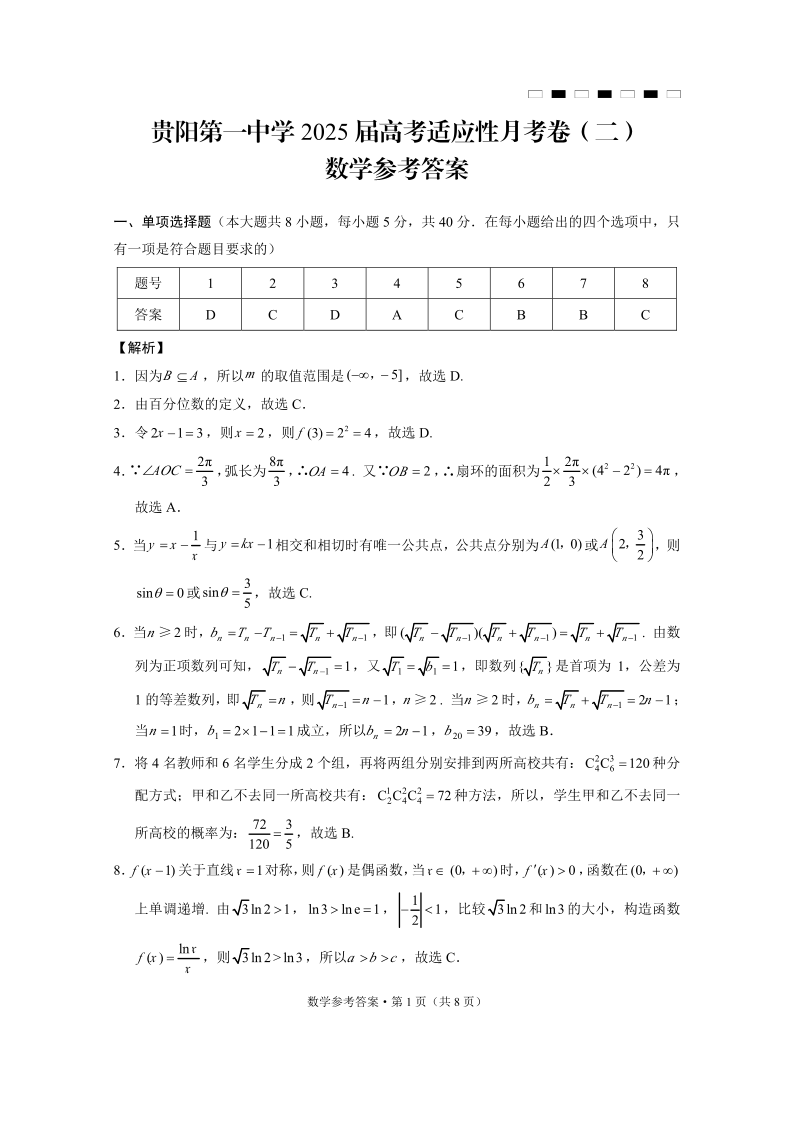 贵阳第一中学 2025 届高考适应性月考卷（二）
数学参考答案
一、单项选择题（本大题共 8 小题，每小题 5 分，共 40 分．在每小题给出的四个选项中，只
有一项是符合题目要求的）
题号 1 2 3 4 5 6 7 8
答案 D C D A C B B C
【解析】
1．因为B ⊆ A ，所以m 的取值范围是(−∞，−5]，故选 D.
2．由百分位数的定义，故选 C．
3．令 2x −1 = 3，则x = 2，则 f (3) = 2² = 4，故选 D.
4．∵∠AOC = 2π/3，弧长为 8π/3，∴OA = 4．又∵OB = 2，∴扇环的面积为 1/2 × 2π/3 × (4² − 2²) = 4π，
故选 A．
5．当y = x − 1/x 与y = kx −1相交和相切时有唯一公共点，公共点分别为A(1，0)或A(2，3/2)，则
sinθ = 0或sinθ = 3/5，故选 C.
6．当n ≥ 2 时，bₙ = Tₙ − Tₙ₋₁ = √Tₙ + √Tₙ₋₁，即(√Tₙ − √Tₙ₋₁)(√Tₙ + √Tₙ₋₁) = √Tₙ + √Tₙ₋₁．由数
列为正项数列可知，√Tₙ − √Tₙ₋₁ = 1，又√T₁ = √b₁ = 1，即数列{√Tₙ}是首项为 1，公差为
1 的等差数列，即√Tₙ = n，则√Tₙ₋₁ = n −1，n ≥ 2．当n ≥ 2 时，bₙ = √Tₙ + √Tₙ₋₁ = 2n −1；
当n = 1时，b₁ = 2×1−1 = 1成立，所以bₙ = 2n −1，b₂₀ = 39，故选 B．
7．将 4 名教师和 6 名学生分成 2 个组，再将两组分别安排到两所高校共有：C₄²C₆³ = 120 种分
配方式；甲和乙不去同一所高校共有：C₂¹C₄²C₄² = 72 种方法，所以，学生甲和乙不去同一
所高校的概率为：72/120 = 3/5，故选 B.
8．f (x −1)关于直线x = 1对称，则 f (x)是偶函数，当x ∈ (0，+∞)时，f ′(x) > 0，函数在(0，+∞)
上单调递增. 由 √3 ln 2 > 1，ln 3 > ln e = 1，|−1/2| < 1，比较 √3 ln 2 和 ln 3 的大小，构造函数
f (x) = ln x/x，则 √3 ln 2 > ln 3，所以a > b > c，故选 C．
数学参考答案·第 1 页（共 8 页）